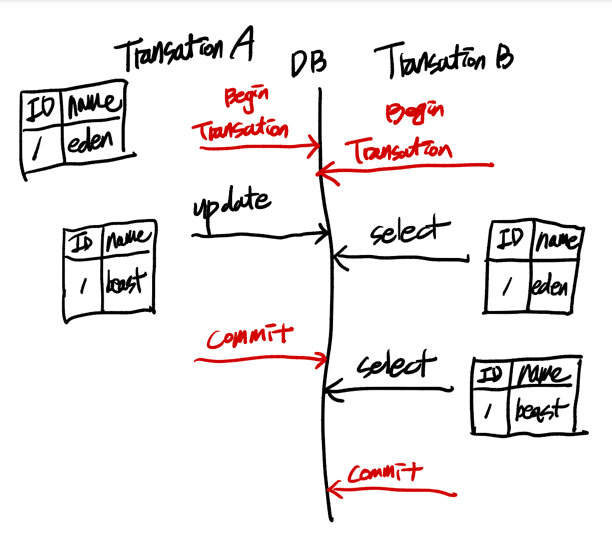 Transation A
DB
Transation B
ID name
1 eden
Begin
Transation
Begin
Transation
update
ID name
1 beast
select
ID name
1 eden
commit
select
ID name
1 beast
commit